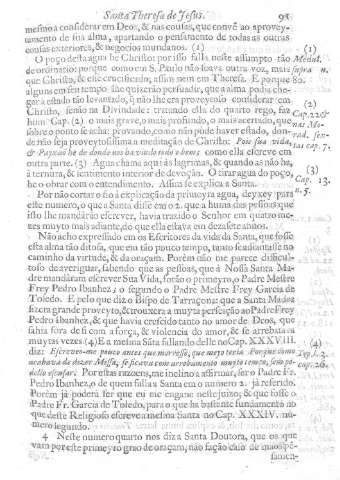 Santa Theresa de Jesus. 95
mesmo a considerar em Deos, & nas cousas, que convê ao aprovey-
tamento de sua alma, apartando o pensamento de todas as outras
cousas exteriores, & negocios mundanos. (1)
O poço desta agua he Christo: por isso falla neste assumpto tão
de ordinario: porque como em S. Paulo não soava outra voz, mais
que Christo, & esse crucificado; assim nem em Theresa. E porque
alguns em seu tempo lhe quizerão persuadir, que a alma podia che-
gar a estado tão levantado, q não lhe era proveyto considerar em
Christo, senão na Divindade: tratando ella do quarto rego, faz
hum Cap. (2) o mais grave, o mais profundo, o mais acertado, que
sobre o ponto se acha: provando, como não póde haver estado, don-
de não seja proveytosissima a meditação de Christo: Pois sua vida,
& Payxaõ he de donde nos ha vindo todo o bem: como ella escreve em
outra parte. (3) Agua chama aqui às lagrimas, & quando as não ha,
à ternura, & sentimento interior de devoção. O tirar agoa do poço,
he o obrar com o entendimento. Assim se explica a Santa.
Por não cortar o fio à explicação da primeyra agua, deyxey para
este numero, o que a Santa disse em o 2. que a huma das pessoas que
isto lhe mandárão escrever, havia trazido o Senhor em quatro me-
zes muyto mais adiante, do que ella estava em dezasete annos.
Não achò expressado em os Escritores da vida da Santa, que fosse
esta alma tão ditosa, que em tão pouco tempo, tanto se adiantasse no
caminho da virtude, & da oraçam. Porèm não me parece dificul-
toso de averiguar, sabendo que as pessoas, que à Nossa Santa Ma-
dre mandáram escrever Sua Vida, forão o primeyro, o Padre Mestre
Frey Pedro Ibanhez, o segundo o Padre Mestre Frey Garcia de
Toledo. E pelo que diz o Bispo de Tarraçona: que a Santa Madre
fez em grande proveyto, & trouxera a muyta perfeição ao Padre Frey
Pedro Ibanhez, & que havia crescido tanto no amor de Deos, que
sahia fóra de si com a força, & violencia do amor, & se arrebatava
muytas vezes (4) E a mesma Sãta fallando delle no Cap. XXXVIII.
diz: Escreveo-me pouco antes que morresse, que meyo teria. Porque como
acabava de dizer Missa, se ficava com arrobamento muyto tempo, sem po-
dello escusar. Por estas razoens, me inclino a affirmar, ser o Padre Fr.
Pedro Ibanhez, o de quem falla a Santa em o numero 2. já referido.
Porém já poderá ser que eu me engane nesta conjectura, & que fosse o
Padre Fr. Garcia de Toledo, para o que ha bastante fundamento no
que deste Religioso escreve a mesma Santa no Cap. XXXIV. nu-
mero segundo.
4 Neste numero quarto nos diz a Santa Doutora, que os que
vam por este primeyro grao de oraçam, não fação caso de maos pe-
samen-
(1)
Medal.
supra n.
80.
(2)
Cap. 22. &
(3)
Cap. 13.
n. 5.
(4)
cap. 20.